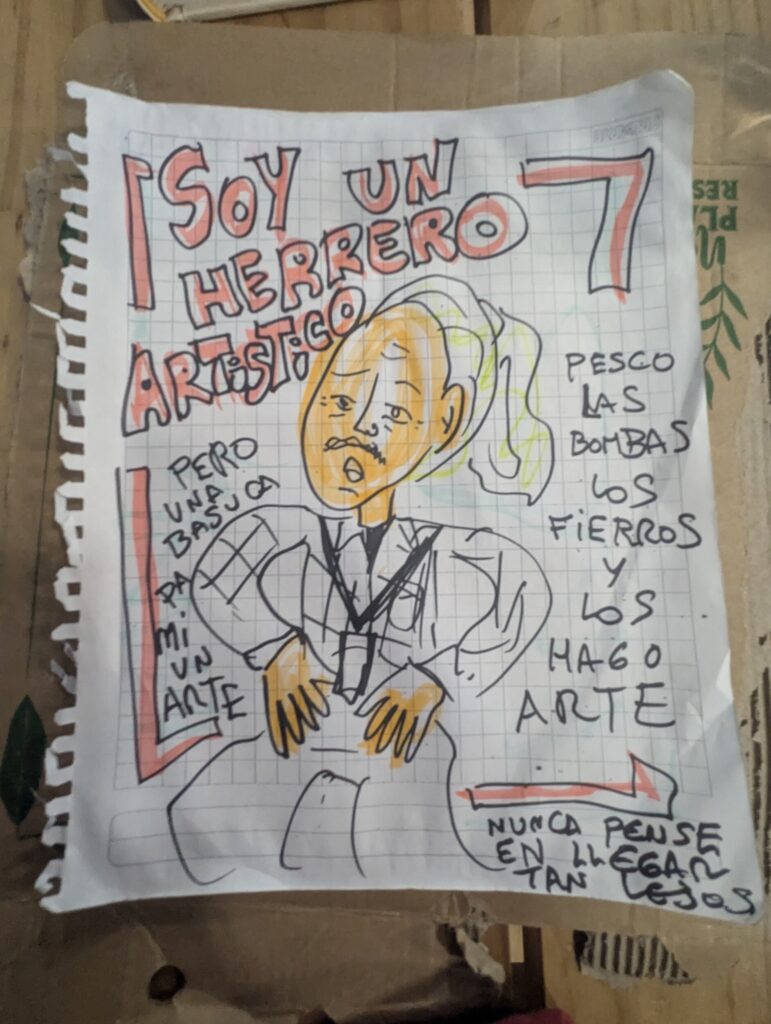 SOY UN
HERRERO
ARTiSTiCO
PERO
UNA
BASUCA
PA
Mi
UN
ARTE
PESCO
LAS
BOMBAS
LOS
FiERROS
Y
LOS
HAGO
ARTE
NUNCA PENSE
EN LLEGAR
TAN LEJOS
PLA
RES